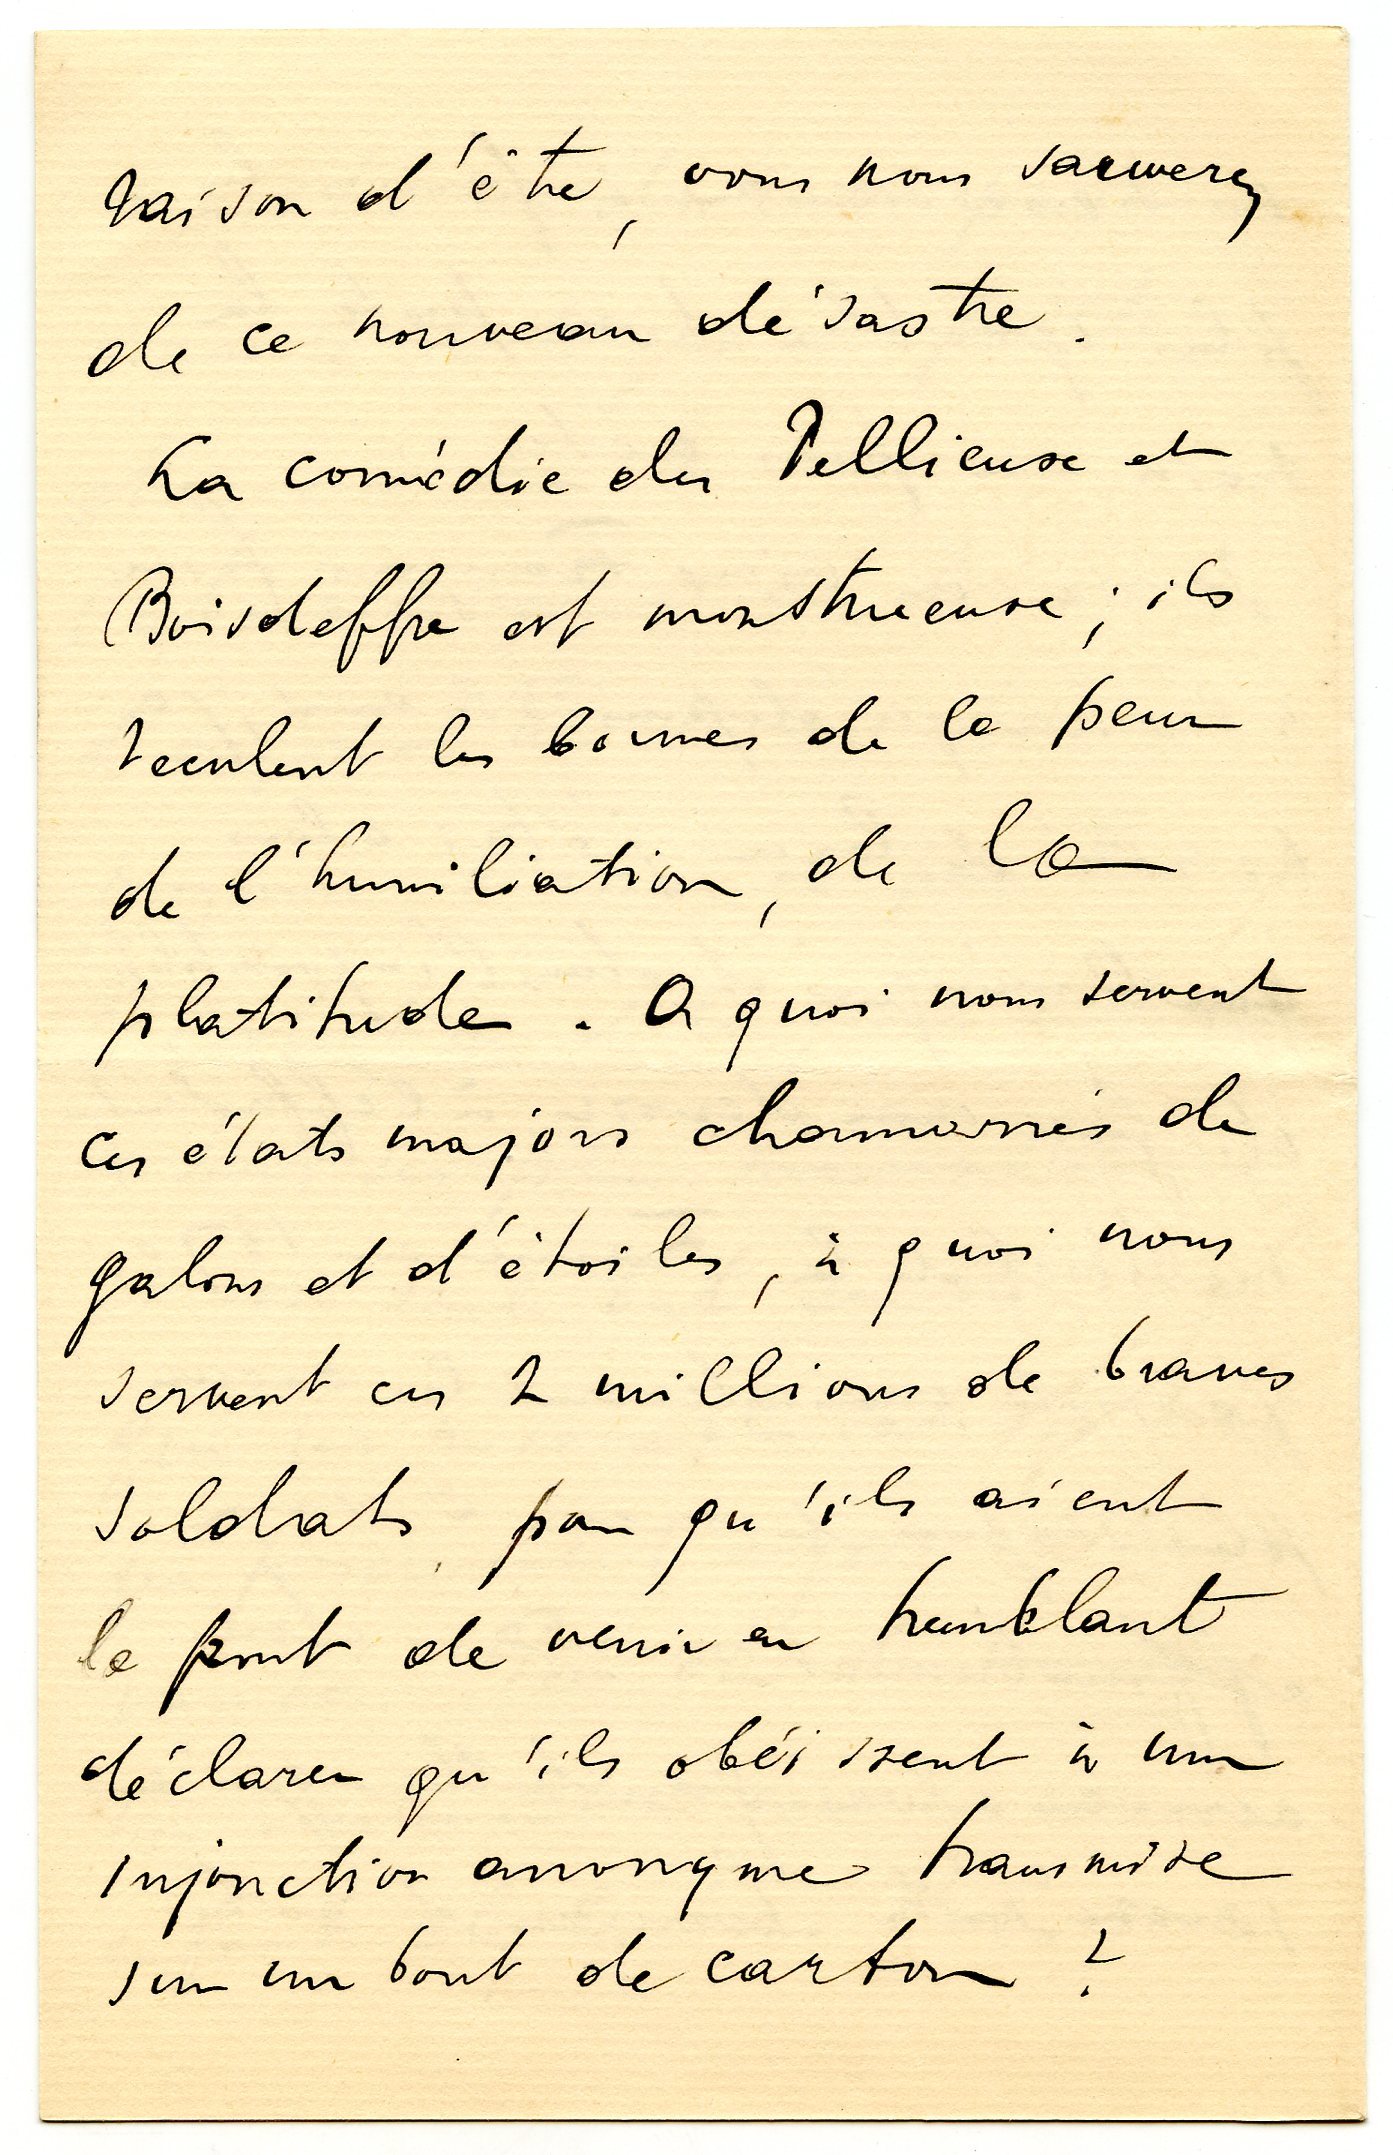 raison d'être, vous nous sauverez
de ce nouveau désastre.
La comédie des Pellieuse et
Boisdeffre est monstrueuse ; ils
reculent les bornes de la peur
de l'humiliation, de la
platitude. A quoi nous servent
ces états majors chamarrés de
galons et d'étoiles, à quoi nous
servent ces 2 millions de braves
soldats, pour qu'ils aient
le front de venir en tremblant
déclarer qu'ils obéissent à une
injonction anonyme transmise
sur un bout de carton ?